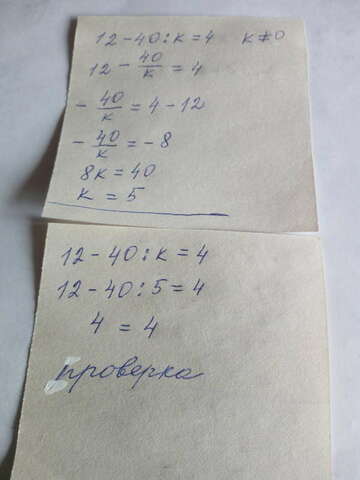 12 - 40 : к = 4 к ≠ 0
12 - 40/к = 4
- 40/к = 4 - 12
- 40/к = - 8
8к = 40
к = 5
12 - 40 : к = 4
12 - 40 : 5 = 4
4 = 4
проверка